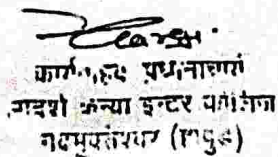 कार्यवाहक प्रधानाचार्या
आदर्श कन्या इन्टर कॉलिज
गढमुक्तेश्वर (हापुड)